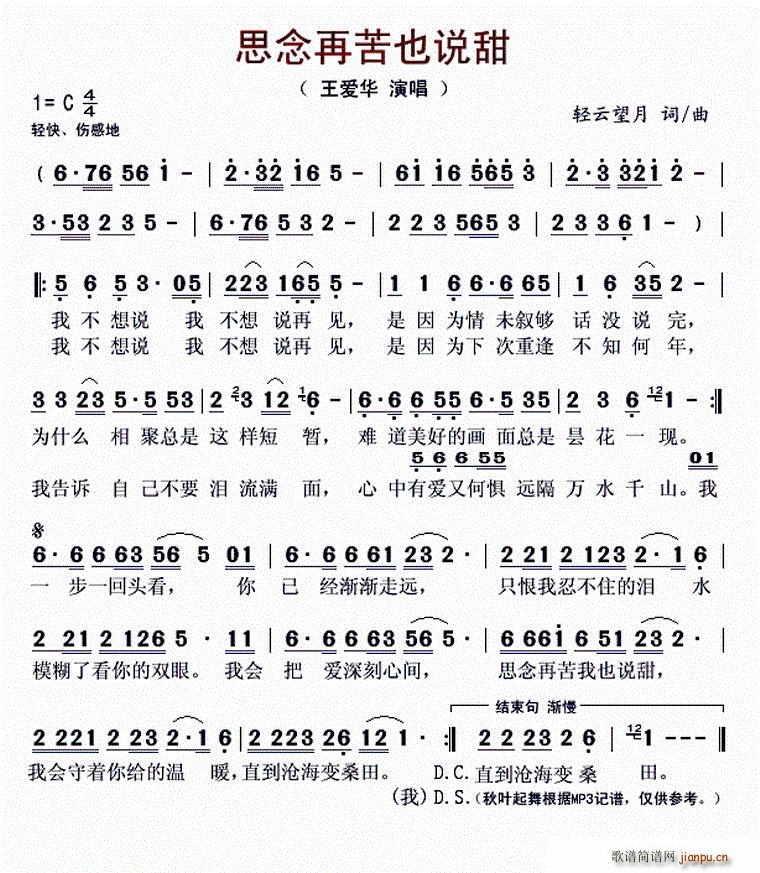 思念再苦也说甜
（ 王爱华 演唱 ）
1= C 4/4
轻云望月 词/曲
轻快、伤感地
( 6·76 56 1 - | 2·32 16 5 - | 61 16 565 3 | 2·3 321 2 - |
3·53 23 5 - | 6·76 53 2 - | 2 23 565 3 | 23 36 1 - ) |
‖: 5 6 5 3· 05 | 223 165 5 - | 1 1 6 6·6 65 | 1 6 35 2 - |
我 不 想说 我 不想 说再 见， 是 因 为情 未叙够 话 没 说 完，
我 不 想说 我 不想 说再 见， 是 因 为下 次重逢 不 知 何 年，
3 3 23 5·5 53 | 2 2 3 12 1 6 - | 6·6 6 55 6·5 35 | 2 3 6 12 1 - :‖
为什么 相 聚总是 这 样短 暂， 难 道美好的画 面总是 昙 花 一 现。
5 6 6 55 01
我告诉 自 己不要 泪 流满 面， 心 中有爱又何惧 远隔 万 水 千 山。我
6· 6 6 63 56 5 01 | 6· 6 6 61 23 2· | 2 21 2 123 2·1 6 |
一 步一回头看， 你 已 经渐渐走远， 只恨我忍不住的泪 水
2 21 2 126 5· 11 | 6· 6 6 63 56 5· | 6 661 6 51 23 2· |
模糊了看你的双眼。我会 把 爱深刻心间， 思念再苦我也说甜，
结束句 渐慢
2 221 2 23 2·1 6 | 2 223 226 12 1· :‖ 2 2 23 2 6 | 12 1 - - - ‖
我会守着你给的温 暖，直到沧海变桑田。 D.C. 直到沧海变 桑 田。
(我) D.S.（秋叶起舞根据MP3记谱，仅供参考。）
歌谱简谱网
jianpu.cn